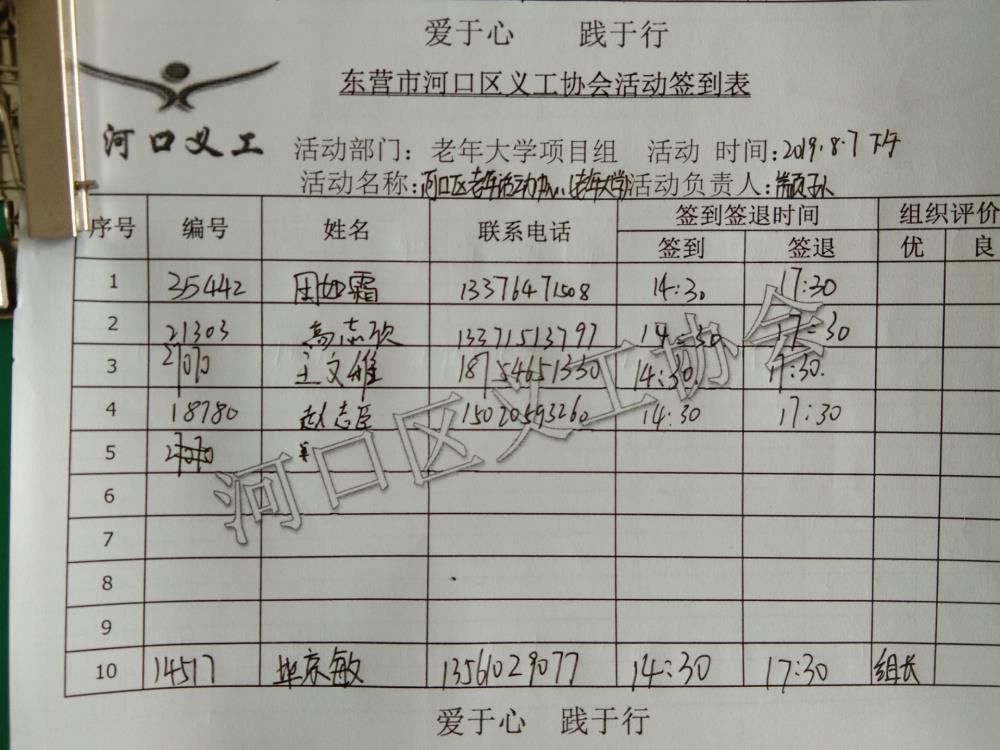 爱于心 践于行
东营市河口区义工协会活动签到表
河口义工
活动部门：老年大学项目组 活动 时间：2019.8.7 下午
活动名称：河口区老年活动中心(老年大学) 活动负责人：
序号 编号 姓名 联系电话 签到签退时间 组织评价
签到 签退 优 良
1 35442 田如霜 13376471508 14:30 17:30
2 21303 高志欣 13371513797 14:30 17:30
3 27070 王文雅 18754651330 14:30 17:30.
4 18780 赵志臣 15020593260 14:30 17:30
5 27070
6
7
8
9
10 14517 京敏 13561029077 14:30 17:30 组长
河口区义工协会
爱于心 践于行